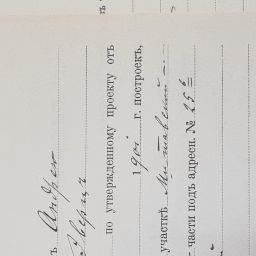 ъ Андрею
Шверцъ
по утвержденному проекту отъ
1901 г. построекъ,
участкѣ Митавской
части подъ адресн. № 25б